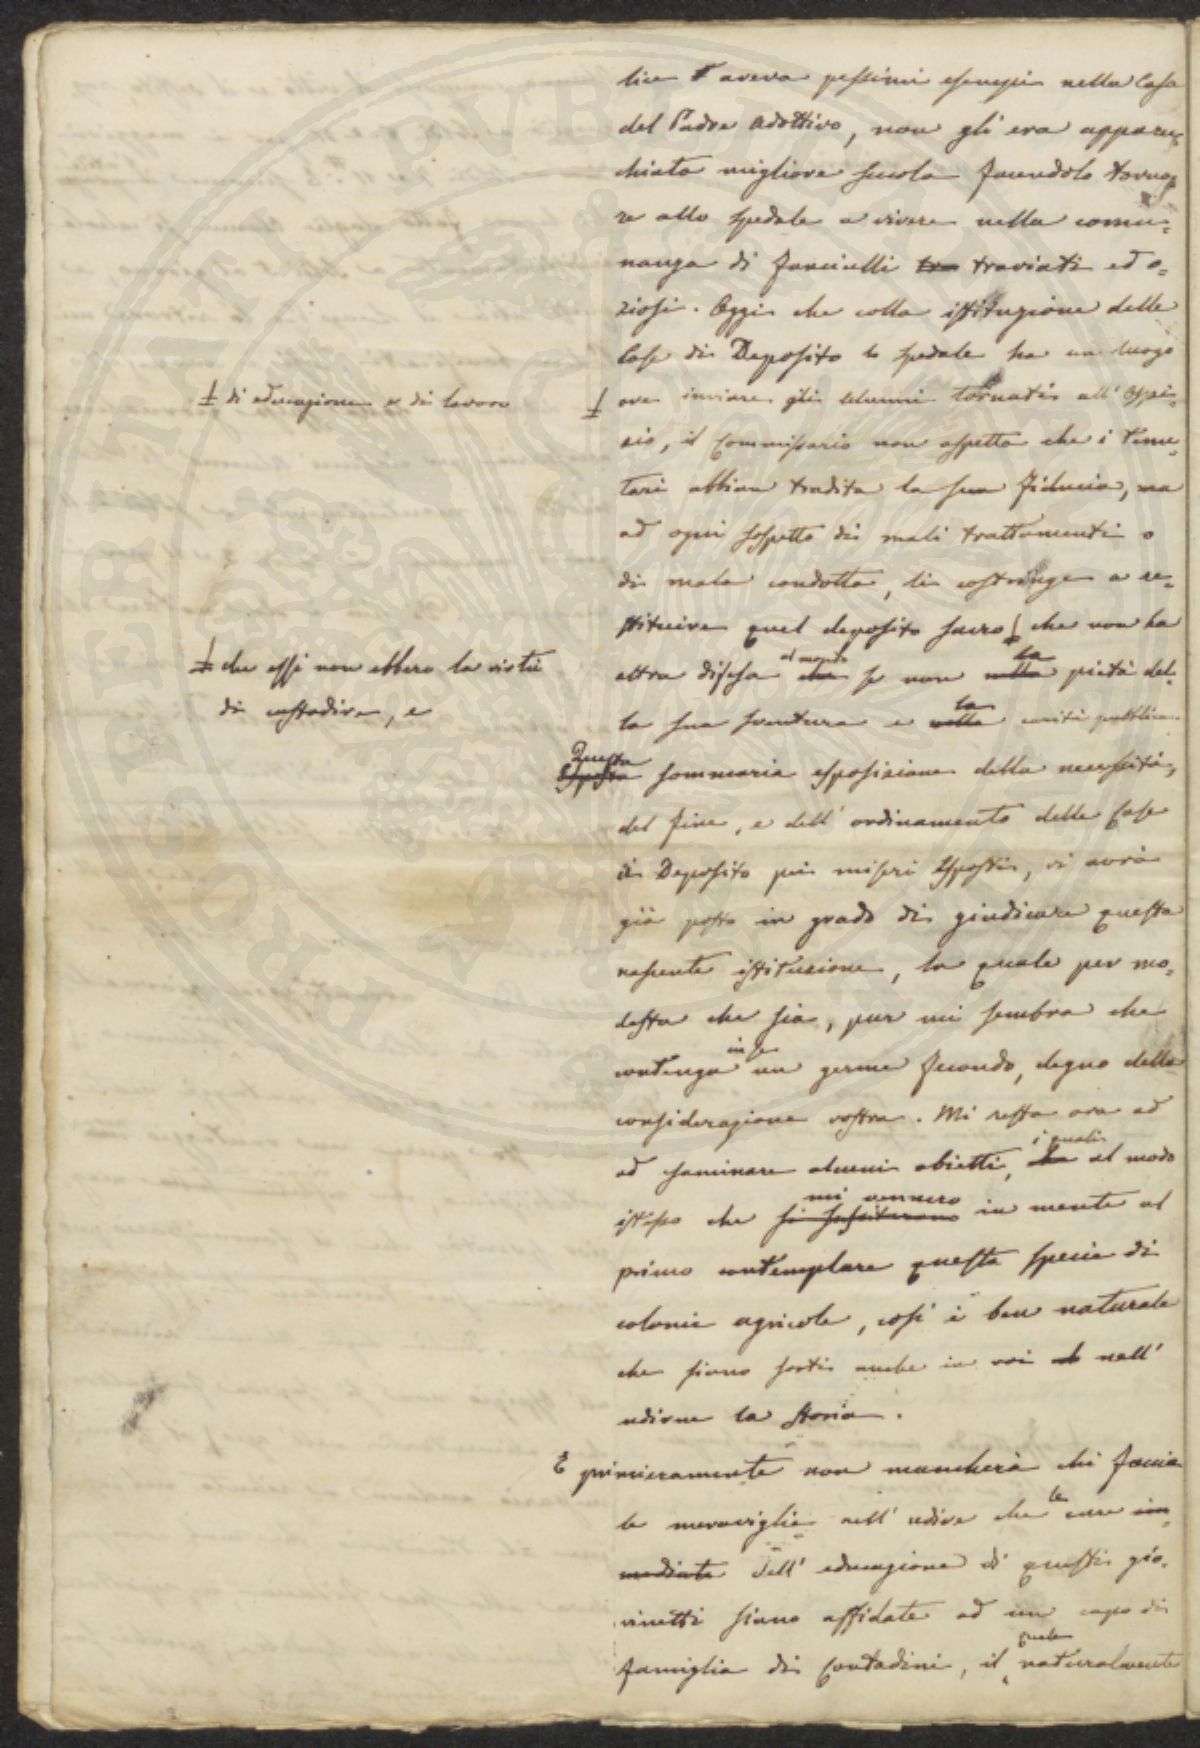 lice aveva pessimi esempi nella Casa
del Padre adottivo, non gli era apparec
chiata migliore scuola facendolo torna
re allo spedale a vivere nella comu=
nanza di fanciulli tra traviati ed o=
ziosi. Oggi che colla istituzione delle
Case di Deposito lo spedale ha un luogo
‡ di educazione e di lavoro
‡ ove inviare gli alunni tornati all'Ospi=
zio, il Commissario non aspetta che i tenu=
tari abbian tradita la sua fiducia, ma
ad ogni sospetto di mali trattamenti o
di mala condotta, li costringe a re=
stituire quel deposito sacro ‡ che non ha
‡ che essi non ebbero la virtù
di custodire, e
al mondo la
altra difesa che se non nella pietà del=
la
la sua sventura e nella carità pubblica.
Questa
Esposta sommaria esposizione della necessità,
del fine, e dell'ordinamento delle Case
di Deposito pei miseri Esposti, vi avrà
già posto in grado di giudicare questa
nascente istituzione, la quale per mo=
desta che sia, pur mi sembra che
in se
contenga un germe fecondo, degno della
considerazione vostra. Mi resta ora ad
i quali
ad esaminare alcuni obietti, che al modo
mi vennero
istesso che si suscitarono in mente al
primo contemplare questa specie di
colonie agricole, così è ben naturale
che siano sorti anche in voi nell'
udirne la storia.
E primieramente non mancherà chi faccia
le
le meraviglie nell'udire che cure im=
mediate dell'educazione di questi gio=
vinetti siano affidate ad un capo di
quale
famiglia di Contadini, il naturalmente